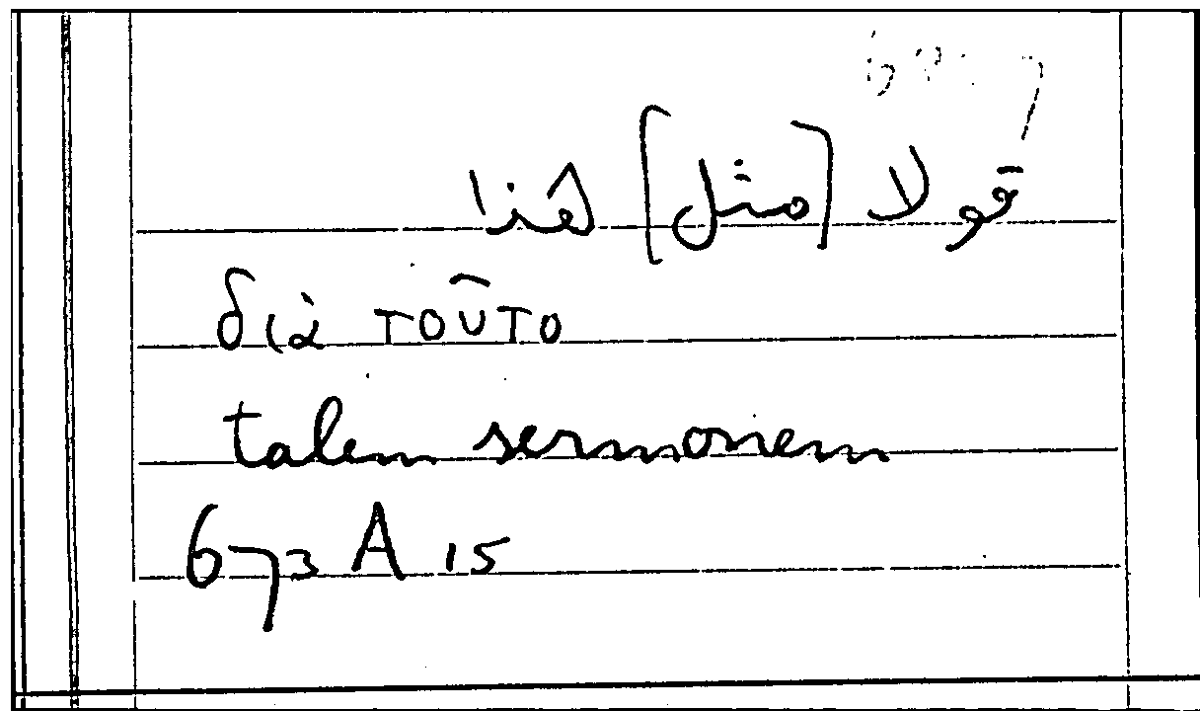 قولا [مثل] هذا
διὰ τοῦτο
talem sermonem
673 A 15